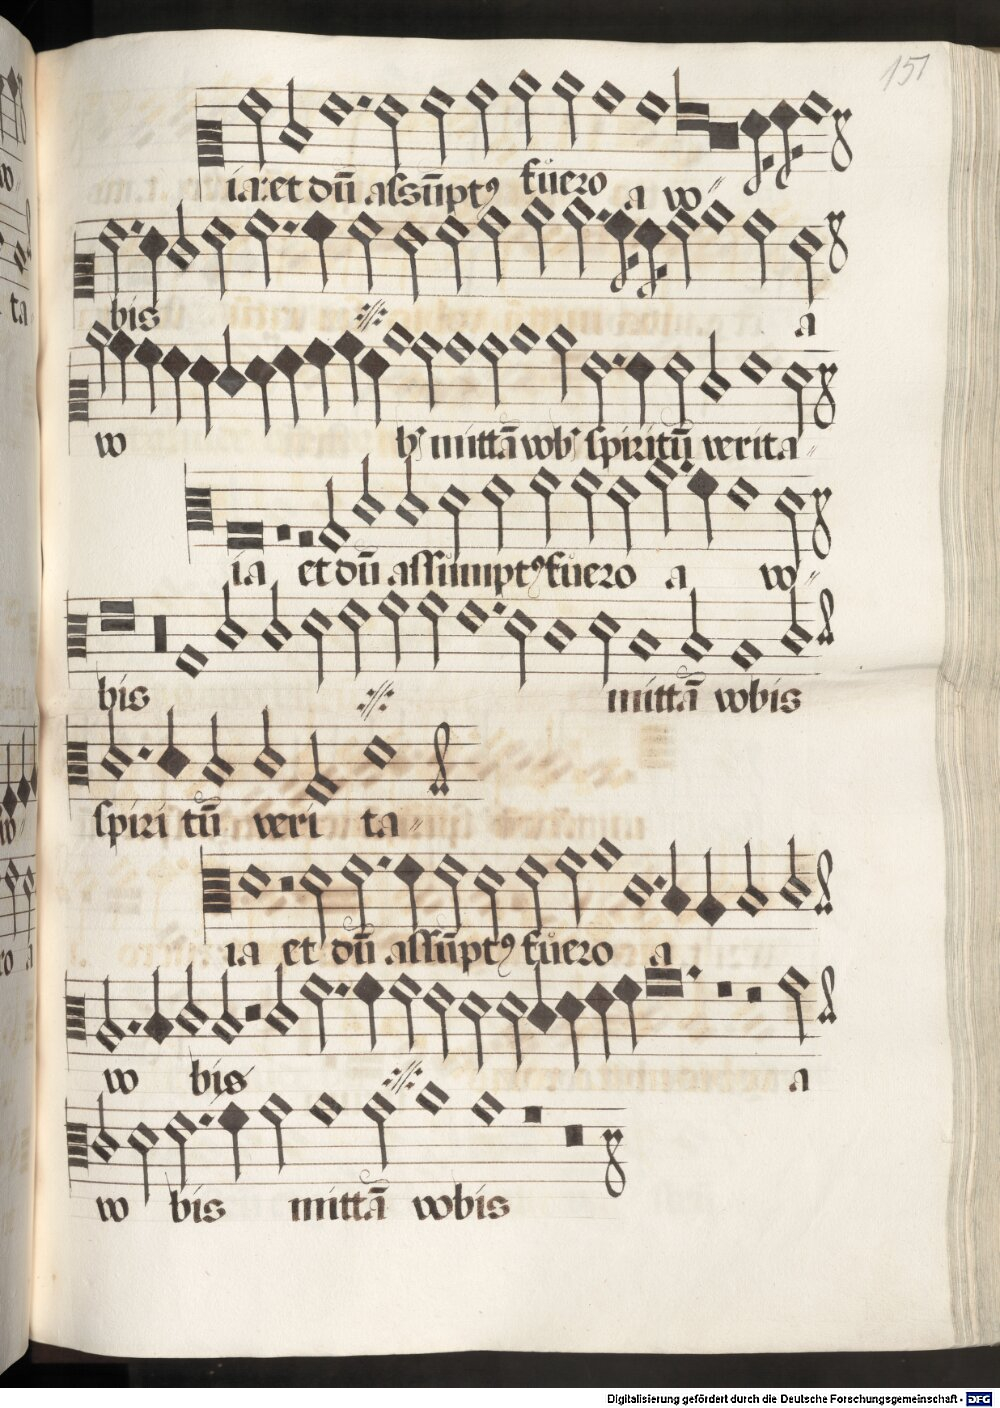 151
ia: et dū assūptꝰ fuero a vo⸗
bis ·//· a
vo bꝭ mittā vobꝭ spiritū verita⸗
ia et dū assumptꝰ fuero a vo⸗
bis ·//· mittā vobis
spiri tū veri ta⸗
ia et dū assūptꝰ fuero a
vo bis ·//· a
vo bis mittā vobis
Digitalisierung gefördert durch die Deutsche Forschungsgemeinschaft - DFG